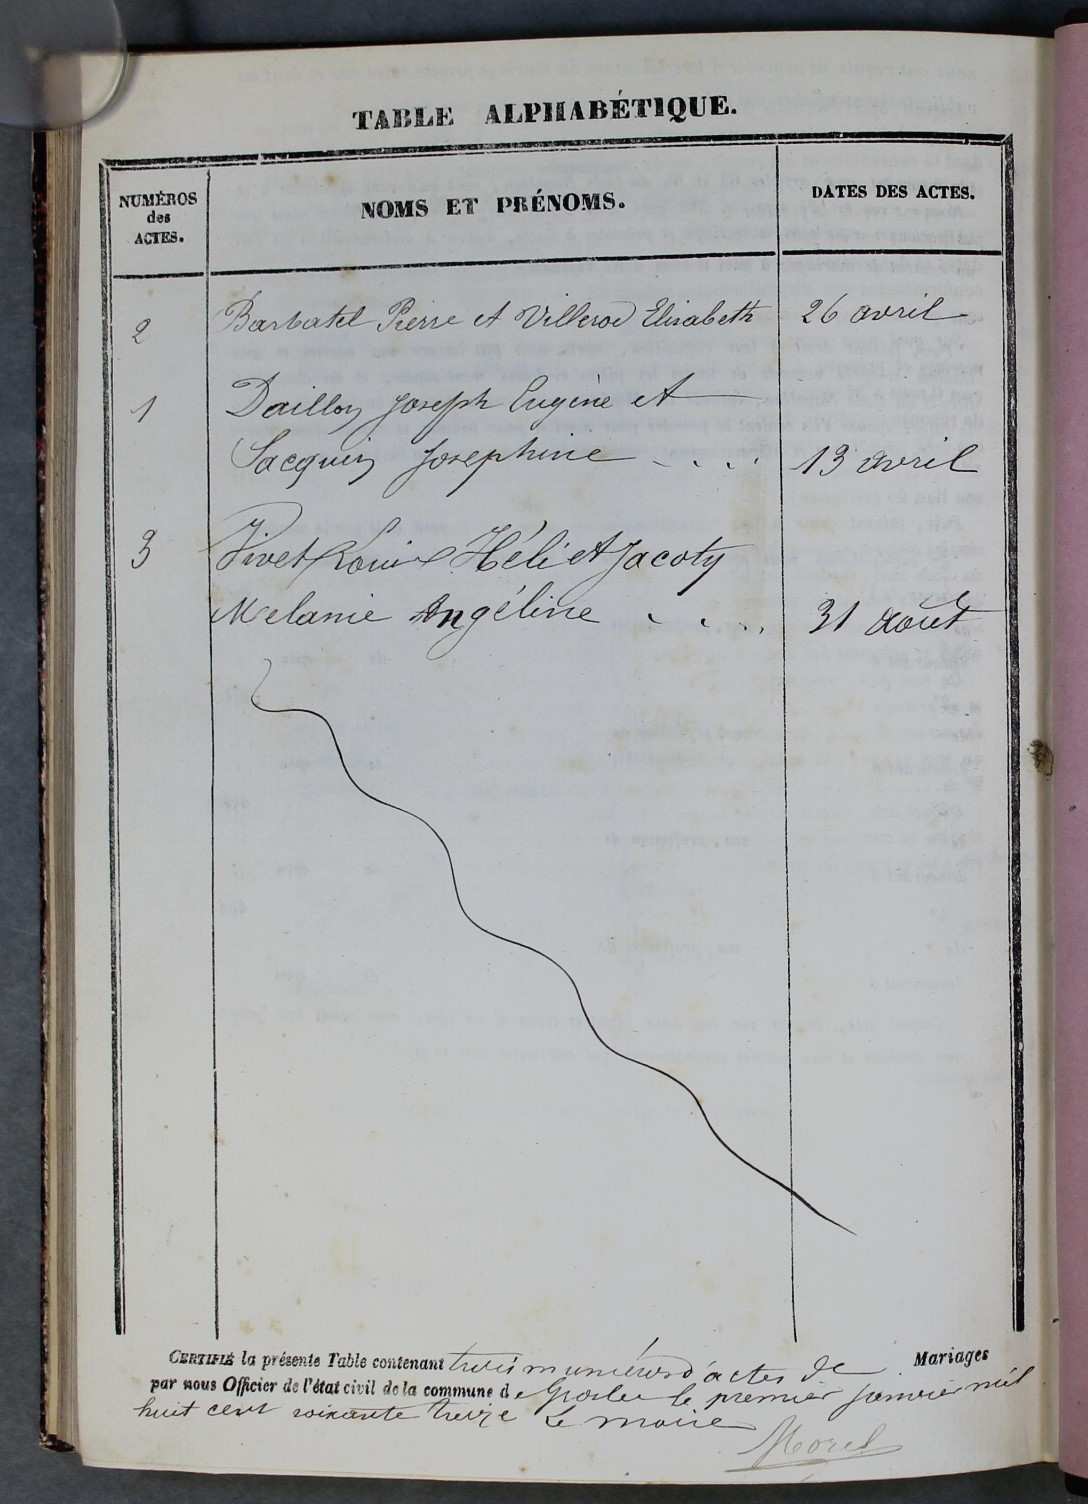 TABLE ALPHABÉTIQUE.
NUMÉROS
des
ACTES.
NOMS ET PRÉNOMS.
DATES DES ACTES.
2 Barbatel Pierre et Villerod Elisabeth 26 avril
1 Daillon Joseph Eugène et
Jacquin Josephine 13 avril
3 Vivet Louis Héli et Jacoty
Melanie Angéline 31 août
CERTIFIÉ la présente Table contenant trois numéros d'actes de Mariages
par nous Officier de l'état civil de la commune de le premier janvier mil
huit cent soixante treize Le maire
Morel